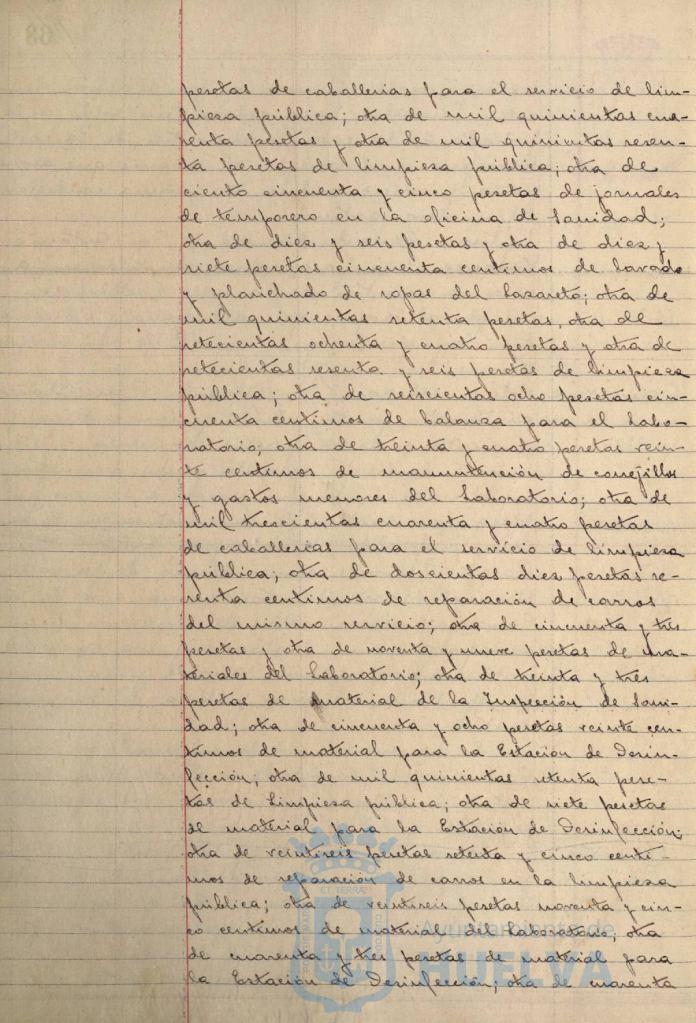 pesetas de caballerias para el servicio de lim-
piesa pública; otra de mil quinientas cua-
renta pesetas y otra de mil quinientas sesen-
ta pesetas de limpiesa pública; otra de
ciento cincuenta y cinco pesetas de jornales
de temporero en la oficina de Sanidad;
otra de diez y seis pesetas y otra de diez y
siete pesetas cincuenta centimos de lavado
y planchado de ropas del Lazareto; otra de
mil quinientas setenta pesetas, otra de
setecientas ochenta y cuatro pesetas y otra de
setecientas sesenta y seis pesetas de limpieza
pública; otra de seiscientas ocho pesetas cin-
cuenta centimos de balanza para el Labo-
ratorio; otra de treinta y cuatro pesetas vein-
te centimos de manutención de conejillos
y gastos menores del Laboratorio; otra de
mil trescientas cuarenta y cuatro pesetas
de caballerias para el servicio de limpieza
pública; otra de doscientas diez pesetas se-
renta centimos de reparación de carros
del mismo servicio; otra de cincuenta y tres
pesetas y otra de noventa y nueve pesetas de ma-
teriales del Laboratorio; otra de treinta y tres
pesetas de material de la Inspección de Sani-
dad; otra de cincuenta y ocho pesetas veinte cen-
timos de material para la Estación de Desin-
fección; otra de mil quinientas setenta pese-
tas de Limpiesa pública; otra de siete pesetas
de material para la Estación de Desinfección;
otra de veintiseis pesetas setenta y cinco centi-
mos de reparación de carros en la limpieza
pública; otra de veintiseis pesetas noventa y cin-
co centimos de material del Laboratorio; otra
de cuarenta y tres pesetas de material para
la Estación de Desinfección; otra de cuarenta
Ayuntamiento de
HUELVA